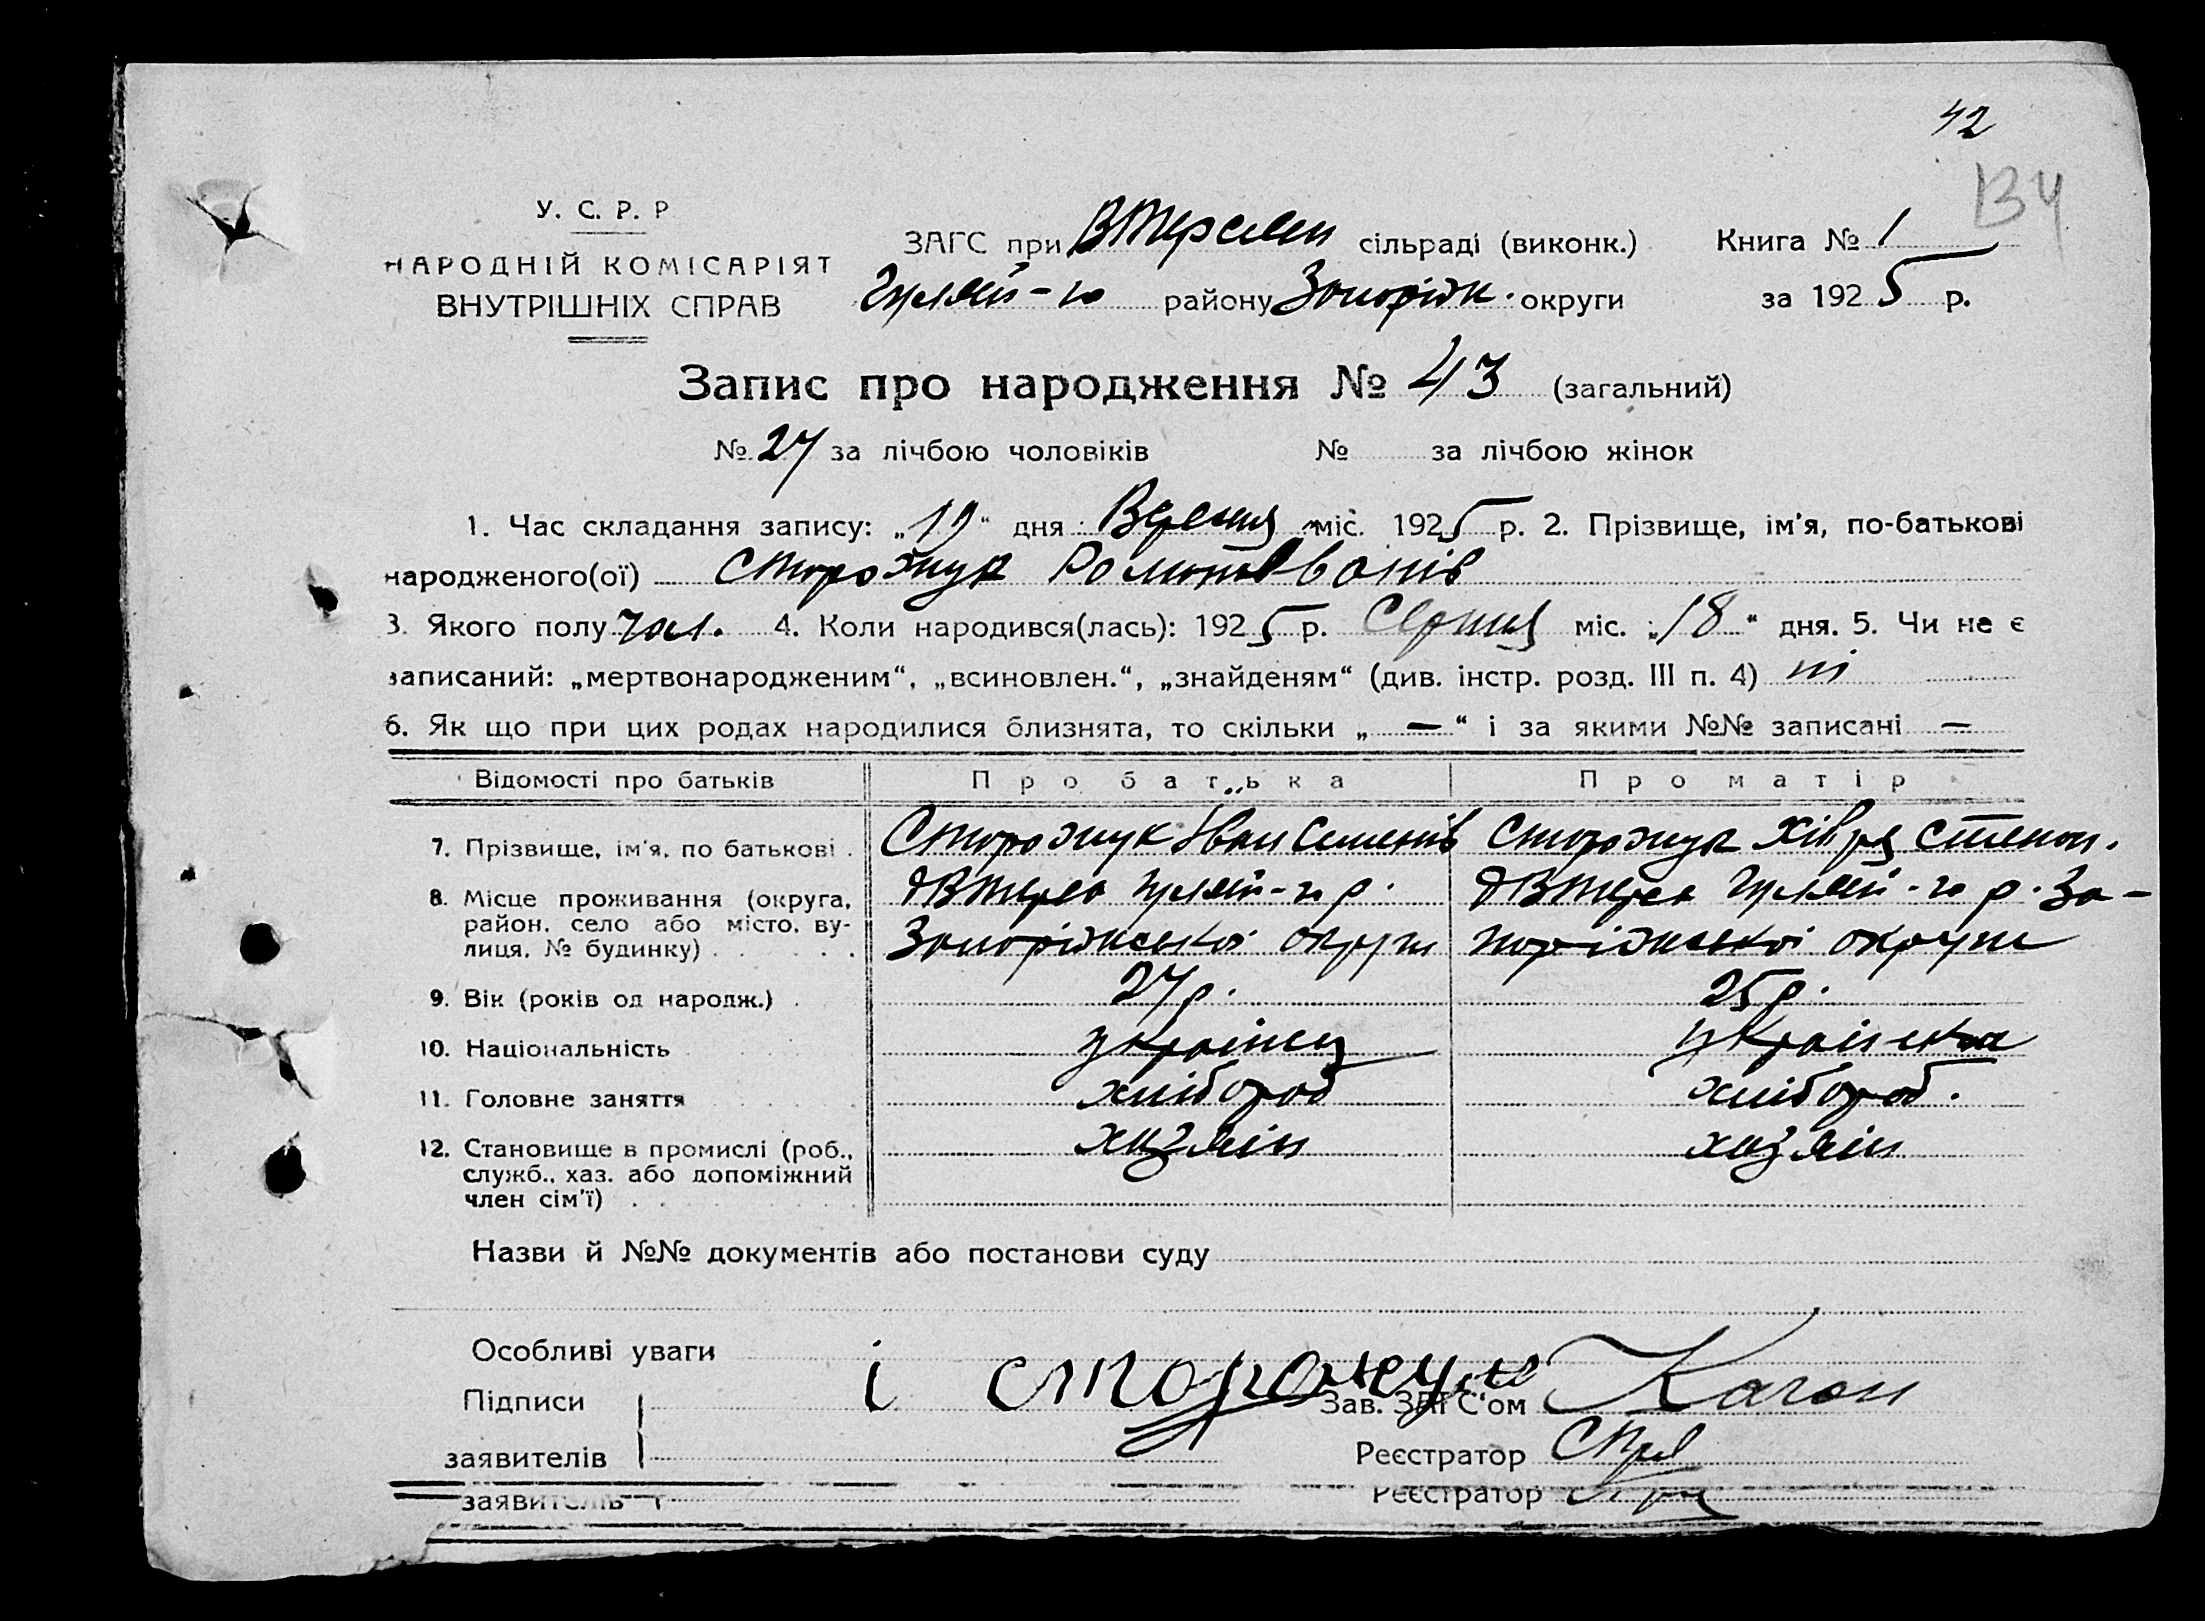 42
134
У. С. Р. Р
НАРОДНІЙ КОМІСАРІЯТ
ВНУТРІШНІХ СПРАВ
ЗАГС при сільраді (виконк.) Книга № 1
Гуляй-го району Запоріж. округи за 1925 р.
Запис про народження № 43 (загальний)
№ 27 за лічбою чоловіків № за лічбою жінок
1. Час складання запису: „19“ дня Вересня міс. 1925 р. 2. Прізвище, ім'я, по-батькові
народженого(ої) Сторожук Іванів
3. Якого полу чол. 4. Коли народився(лась): 1925 р. Серпня міс. „18“ дня. 5. Чи не є
записаний: „мертвонародженим“, „всиновлен.“, „знайденям“ (див. інстр. розд. III п. 4) ні
6. Як що при цих родах народилися близнята, то скільки „—“ і за якими №№ записані —
Відомості про батьків Про батька Про матір
7. Прізвище, ім'я, по батькові . Сторожук Іван Семенів Сторожук Хівря Степан.
8. Місце проживання (округа, район, село або місто, вулиця, № будинку) . . . . . Гуляй-го р. Запоріжської округи Гуляй-го р. Запоріжської округи
9. Вік (років од народж.) . 27 р. 25 р.
10. Національність українец українка
11. Головне заняття хлібороб хлібороб.
12. Становище в промислі (роб., служб., хаз. або допоміжний член сім'ї) . . хазяїн хазяїн
Назви й №№ документів або постанови суду
Особливі уваги
Підписи і Сторожук Зав. ЗАГС'ом Каган
заявителів Реєстратор
заявителів Реєстратор